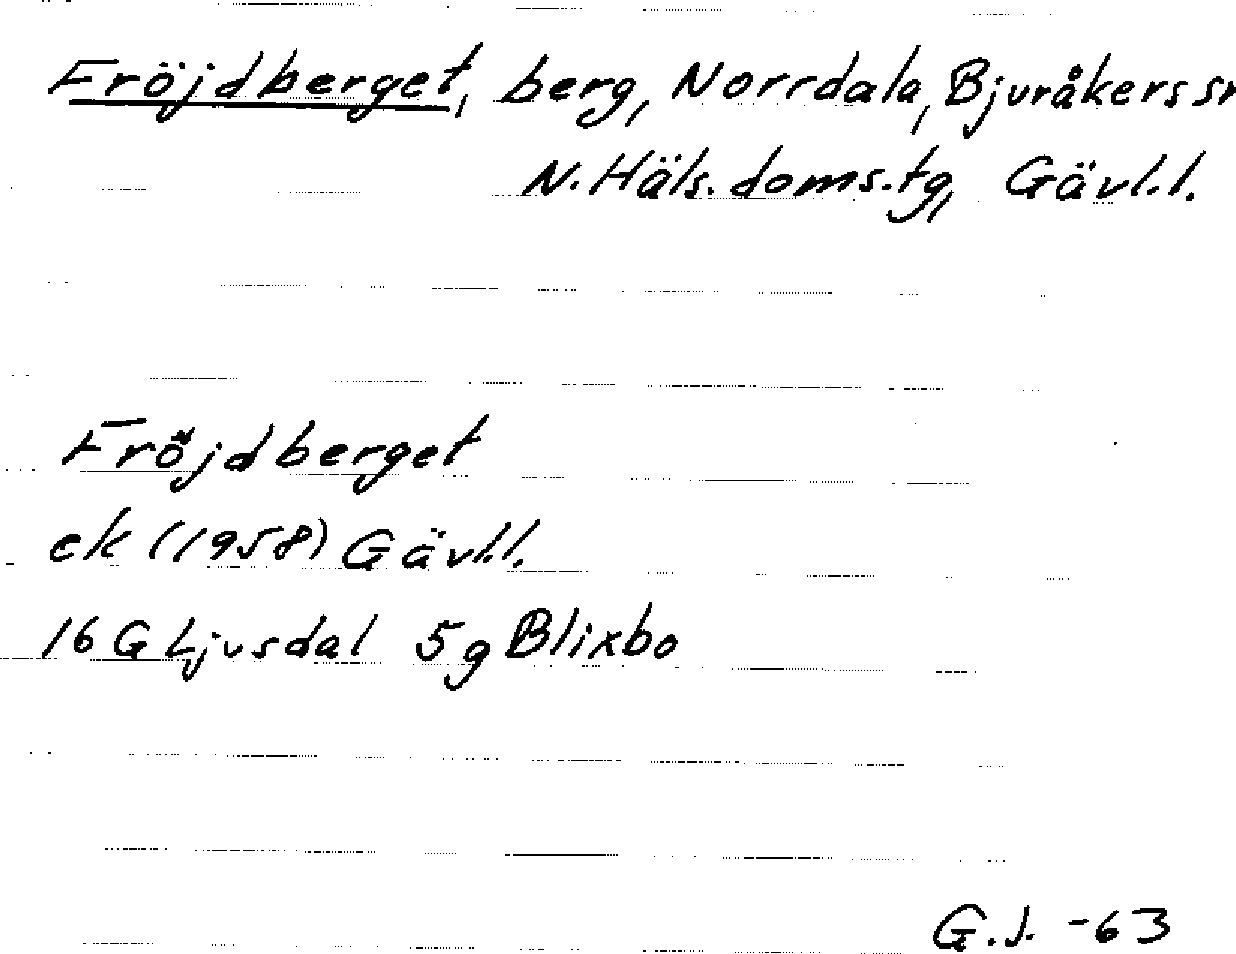 Fröjdberget, berg, Norrdala, Bjuråkers sn
N. Häls. doms.tg, Gävl.l.
Fröjdberget
ek (1958) Gävl.l.
16 G Ljusdal 5 g Blixbo
G.J. -63